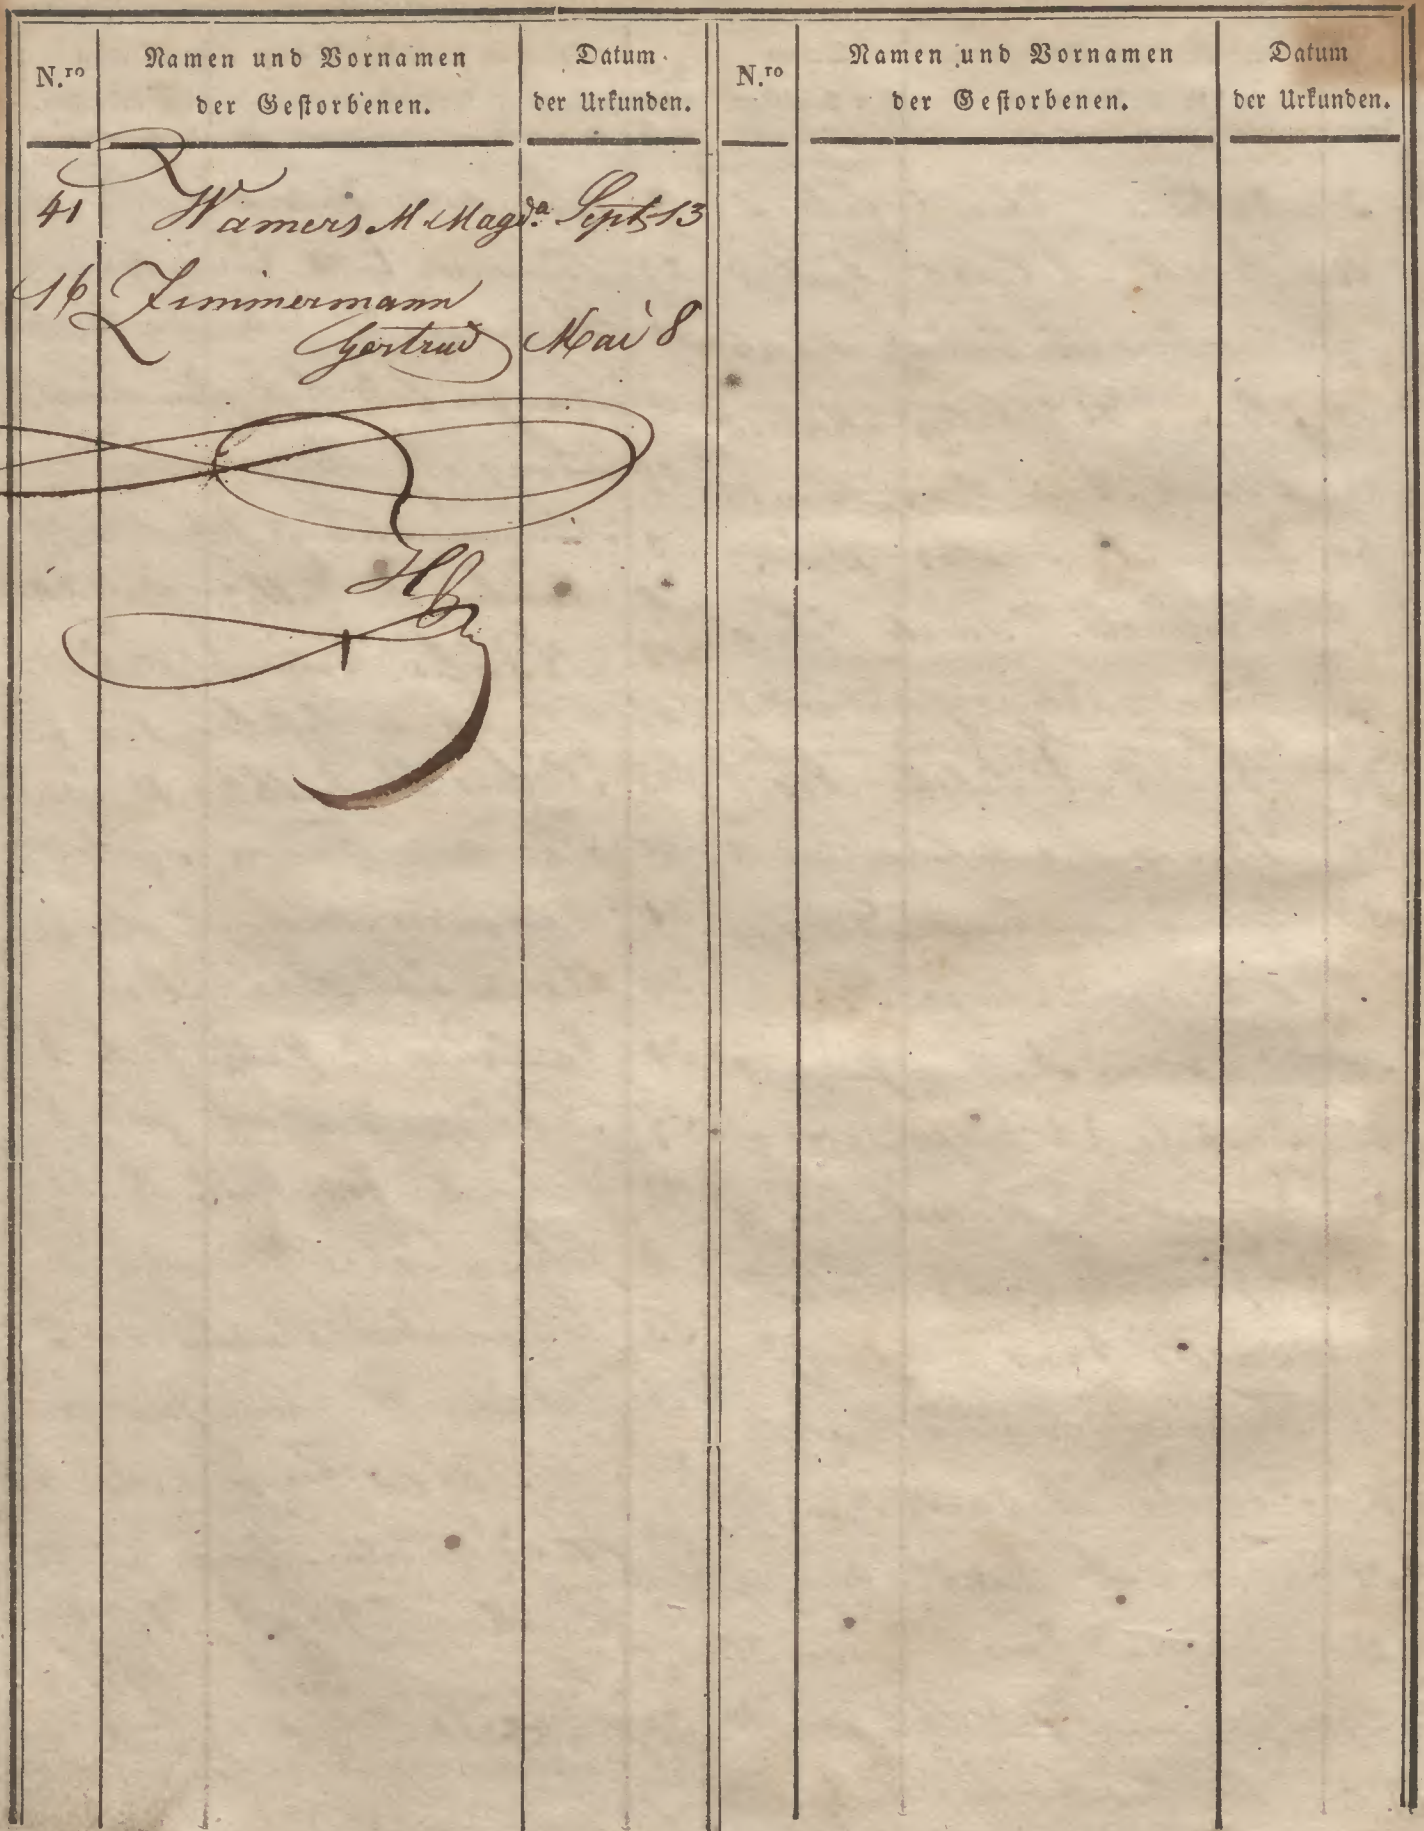 N.ro
Namen und Vornamen
der Gestorbenen.
Datum
der Urkunden.
N.ro
Namen und Vornamen
der Gestorbenen.
Datum
der Urkunden.
41 Wamers M Magda. Sept 13
16 Zimmermann
Gertrud Mai 8